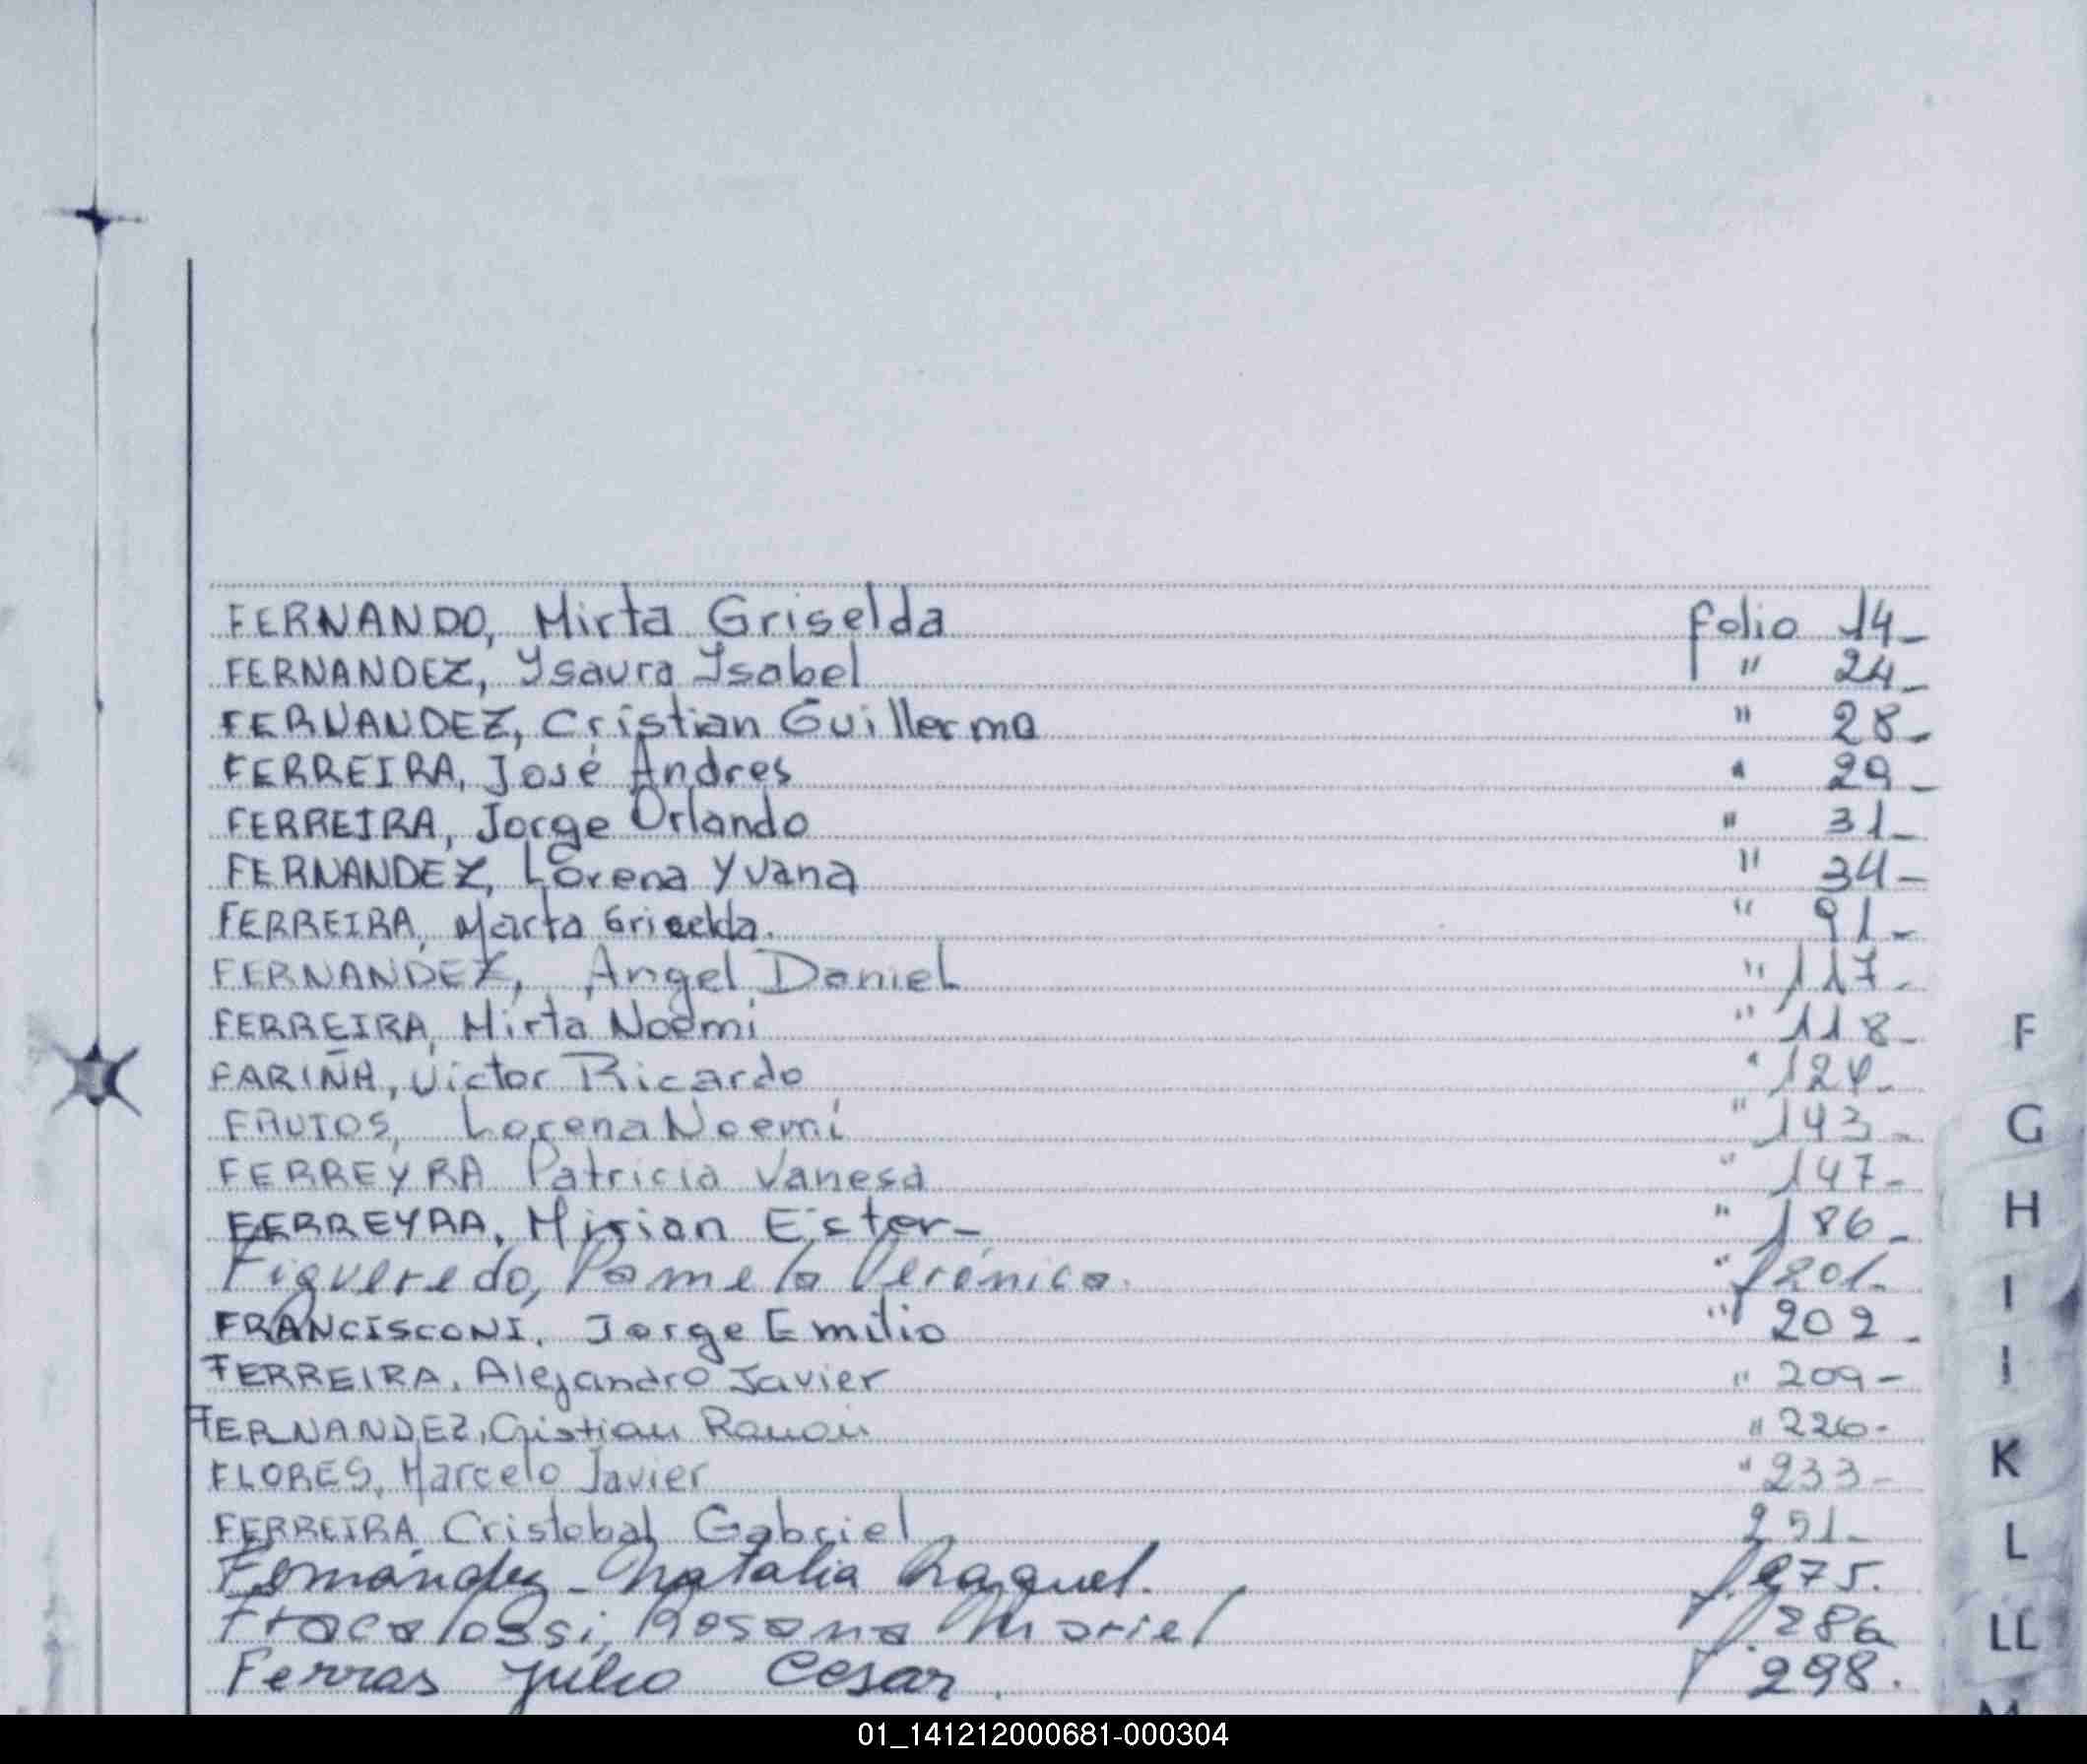 FERNANDO, Mirta Griselda folio 14_
FERNANDEZ, Ysaura Ysabel " 24_
FERNANDEZ, Cristian Guillermo " 28_
FERREIRA, José Andres " 29_
FERREIRA, Jorge Orlando " 31_
FERNANDEZ, Lorena Yvana " 34_
FERREIRA, Marta Griselda. " 91_
FERNANDEZ, Angel Daniel " 117_
FERREIRA, Mirta Noemi " 118_
FARIÑA, Victor Ricardo " 124_
FRUTOS, Lorena Noemí " 143_
FERREYRA Patricia Vanesa " 147_
FERREYRA, Mirian Ester_ " 186_
Figueredo, Pamela Verónica. " f 201_
FRANCISCONI, Jorge Emilio " 202_
FERREIRA, Alejandro Javier " 209_
FERNANDEZ, Cristian Ramon " 226-
FLORES, Marcelo Javier " 233-
FERREIRA, Cristobal Gabriel 251_
Fernández_ Natalia Raquel. f. 275.
Fracalossi, Rosana Mariel f. 286
Ferras Julio Cesar. f. 298.
F
G
H
I
J
K
L
LL
M
01_141212000681-000304